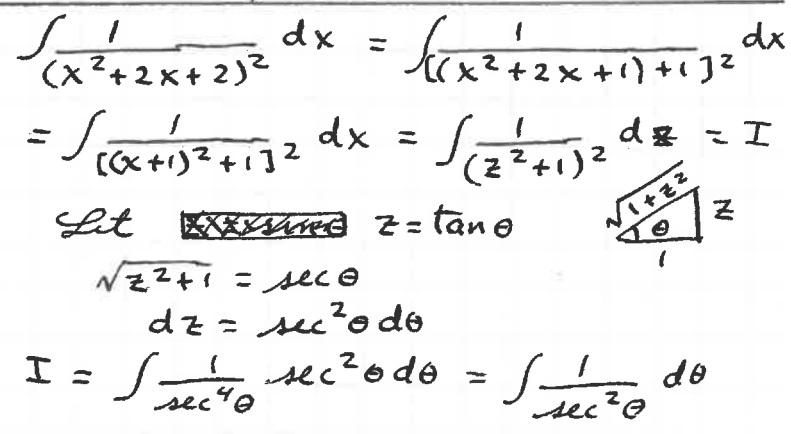 ∫ 1/(x²+2x+2)² dx = ∫ 1/[(x²+2x+1)+1]² dx
= ∫ 1/[(x+1)²+1]² dx = ∫ 1/(z²+1)² dz = I
Let z = tan θ
√(1+z²) z θ 1
√(z²+1) = sec θ
dz = sec²θ dθ
I = ∫ 1/sec⁴θ sec²θ dθ = ∫ 1/sec²θ dθ